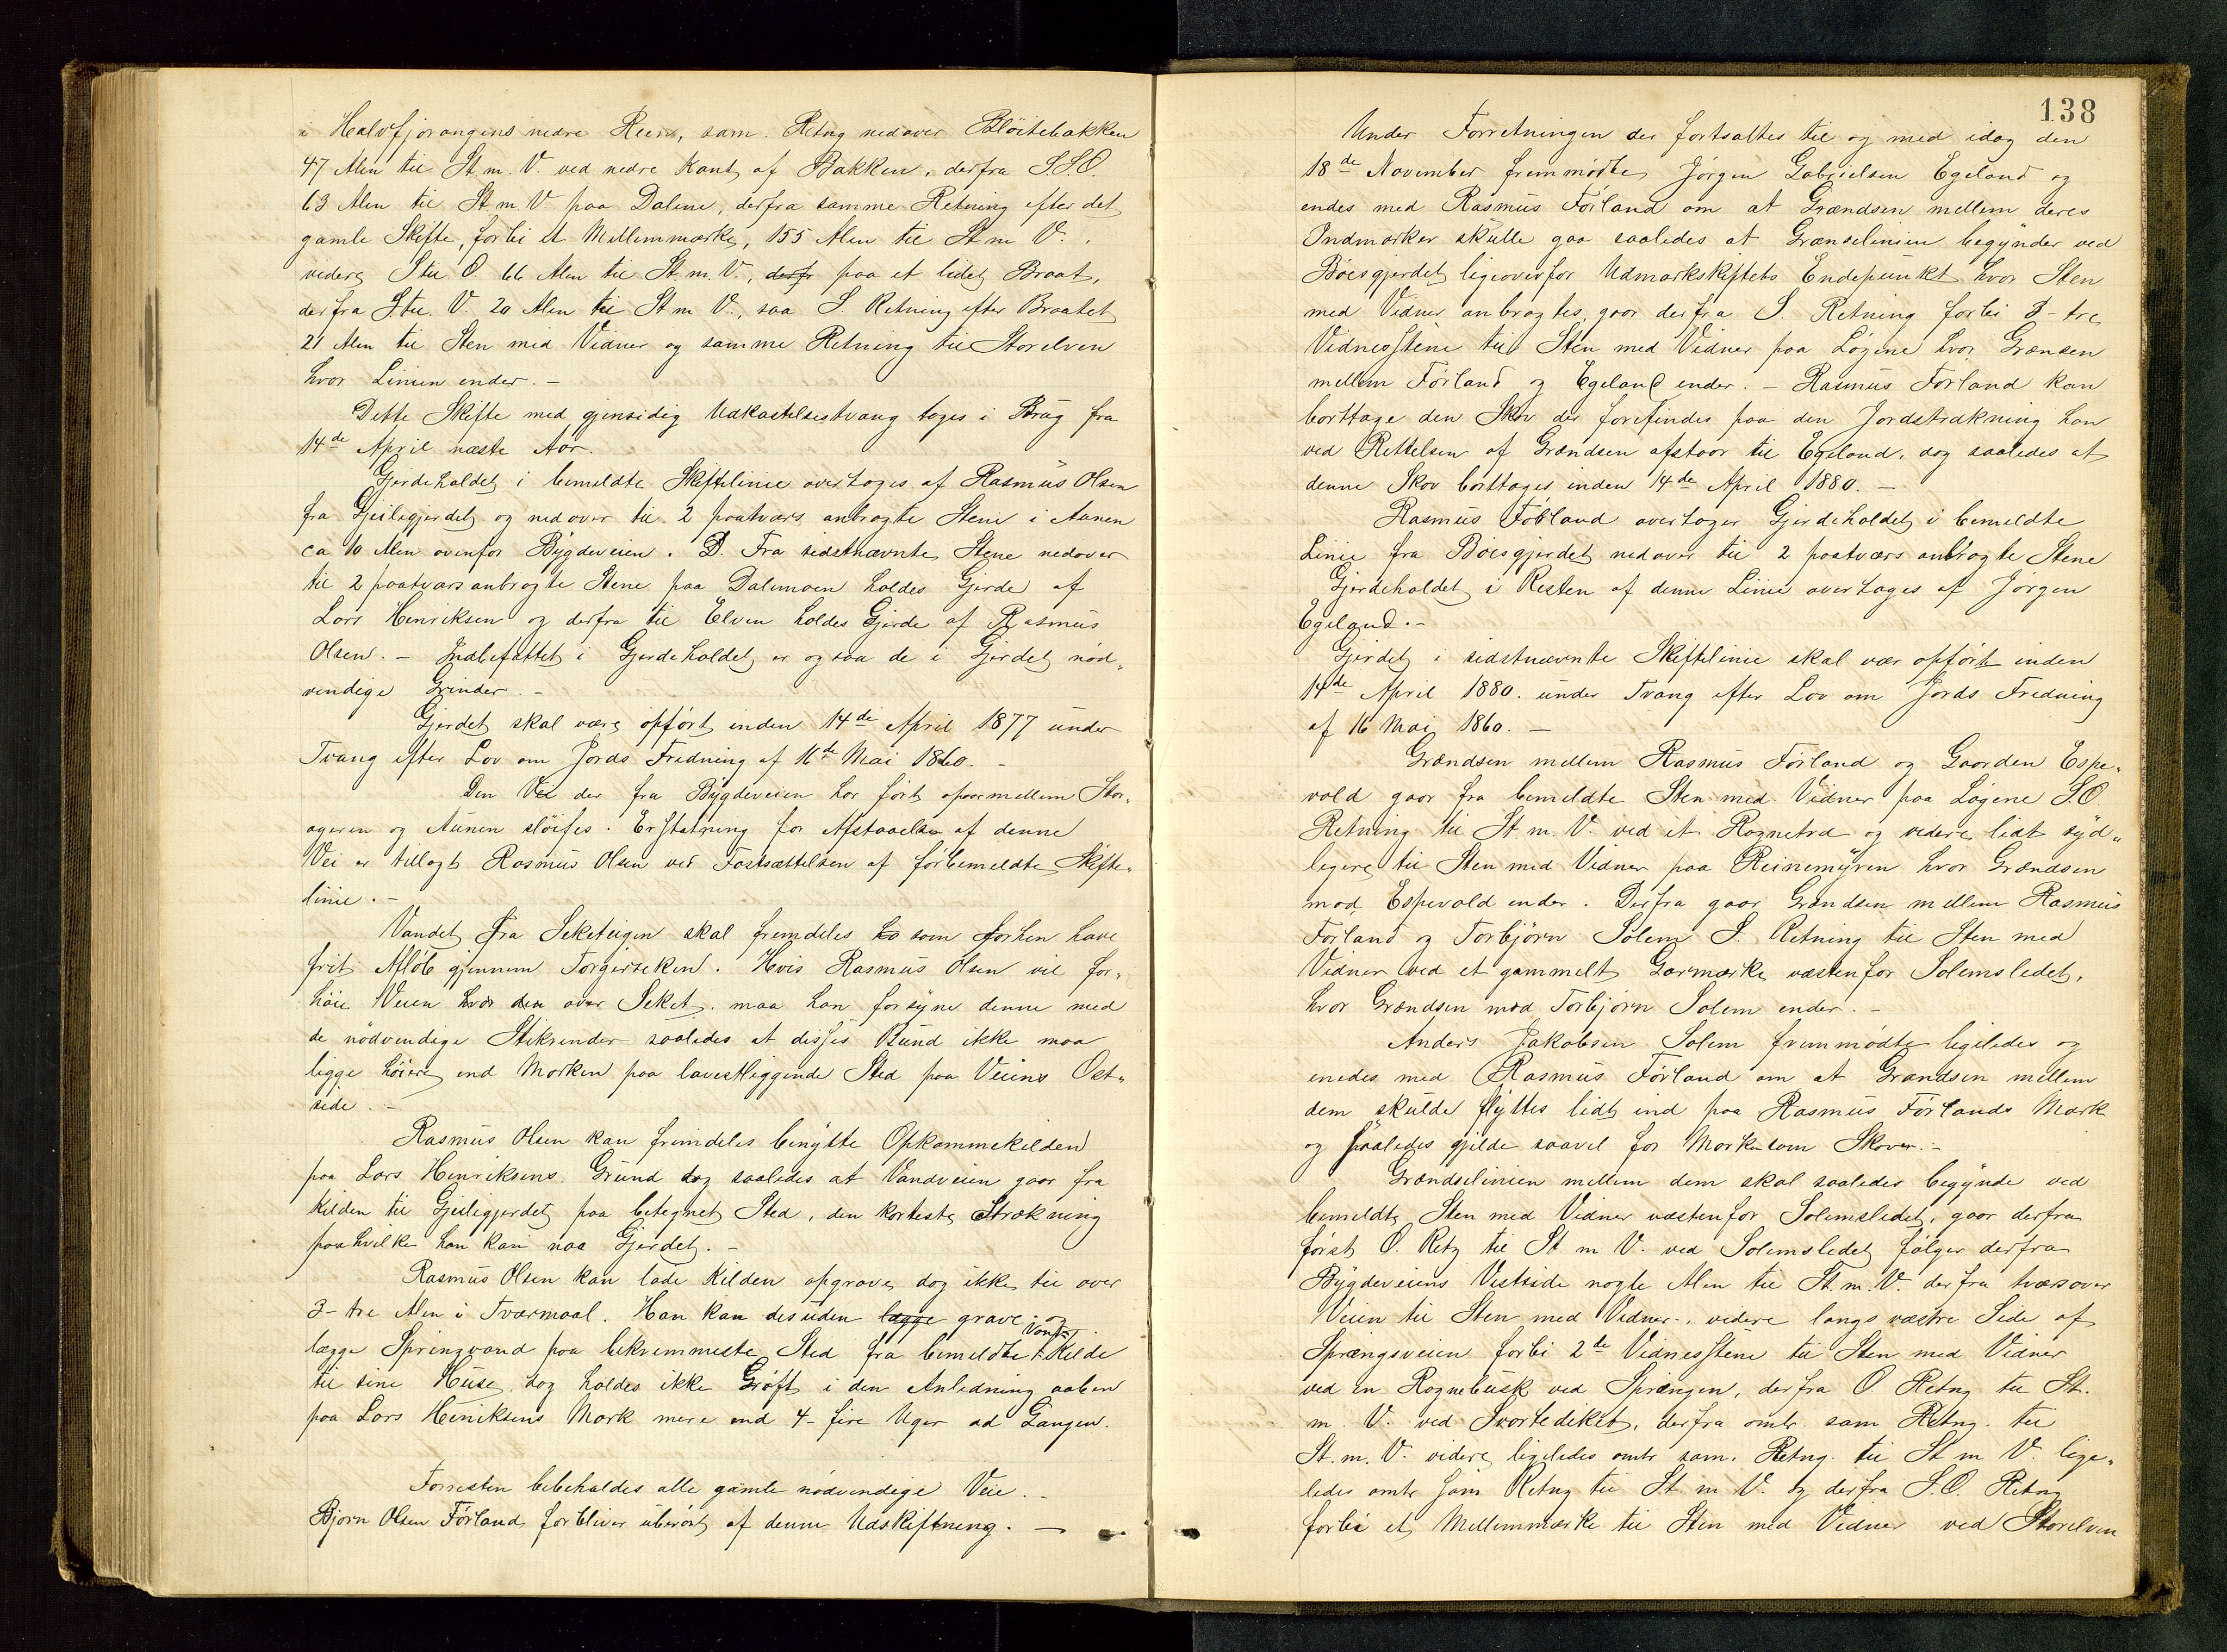 i Halvfjorangens nedre Reen, sam. Retng nedover Blöitebakken
47 Alen til St. m. V. ved nedre Kant af Bakken, derfra S.S.O.
63 Alen til St. m. V. paa Dalene, derfra samme Retning efter det
gamle Skifte, forbi et Mellemmærke, 155 Alen til St. m V.
videre S til O. 66 Alen til St. m. V., derfr paa et lidet Braat,
derfra S. til V. 20 Alen til St. m V., saa S. Retning efter Braatet
21 Alen til Sten med Vidner og samme Retning til Storelven
hvor Linien ender. –
Dette Skifte med gjensidig Udkastelsestvang tages i Brug fra
14de April næste Aar.
Gjerdeholdet i bemeldte Skiftelinie overtages af Rasmus Olsen
fra Gjeilegjerdet og nedover til 2 paatværs anbragte Stene i Aunen
ca 10 Alen ovenfor Bygdeveien. D. Fra sidstnævnte Stene nedover
til 2 paatvars anbragte Stene paa Dalemoen holdes Gjerde af
Lars Henriksen og derfra til Elven holdes Gjerde af Rasmus
Olsen. – Indbefattet i Gjerdeholdet er ogsaa de i Gjerdet nöd„
vendige Grinder. –
Gjerdet skal være opfört inden 14de April 1877 under
Tvang efter Lov om Jords Fredning af 16de Mai 1860. –
Den Vei der fra Bygdeveien har fört opover mellem Stor„
ageren og Aunen slöifes. Erstatning for Afstaaelse af denne
Vei er tillagt Rasmus Olsen ved Fastsættelsen af förbemeldte Skifte„
linie. –
Vandet fra Seketeigen skal fremdeles ha som forhen have
frit Aflöb gjennem Torgerseken. Hvis Rasmus Olsen vil for„
höie Veien hvor den over Seket, maa han forsyne denne med
de nödvendige Stikrender saaledes at disses Bund ikke maa
ligge höiere end Marken paa lavestliggende Sted paa Veiens Öst„
side. –
Rasmus Olsen kan fremdeles benytte Opkommekilden
paa Lars Henriksens Grund dog saaledes at Vandveien gaar fra
Kilden til Gjeilegjerdet paa betegnet Sted, den korteste Strækning
paa hvilke han kan naa Gjerdet. –
Rasmus Olsen kan lade Kilden opgrave, dog ikke til over
3 – tre Alen i Tværmaal. Han kan desuden lægge grave og
lægge Springvand paa bekvemmeste Sted fra bemeldte Vand Kilde
til sine Huse, dog holdes ikke Gröft i den Anledning aaben
paa Lars Henriksens Mark mere end 4 – fire Uger ad Gangen.
Forresten bibeholdes alle gamle nödvendige Veie. –
Bjørn Olsen Förland forbliver uberört af denne Udskiftning. –
138
Under Forretningen der fortsattes til og med idag den
18de November fremmödte Jörgen Gabrielsen Egeland og
endes med Rasmus Förland om at Grændsen mellem deres
Indmarker skulle gaa saaledes at Grænselinien begynder ved
Böesgjerdet ligeoverfor Udmarkskiftets Endepunkt hvor Sten
med Vidner anbragtes, gaar derfra S. Retning forbi 3 – tre
Vidnesstene til Sten med Vidner paa Lögene hvor Grænsen
mellem Förland og Egeland ender. – Rasmus Förland kan
borttage den Skov der forefindes paa den Jordstrækning han
ved Rettelsen af Grændsen afstaar til Egeland, dog saaledes at
denne Skov borttages inden 14de April 1880. –
Rasmus Förland overtager Gjerdeholdet i bemeldte
Linie fra Böesgjerdet nedover til 2 paatværs anbragte Stene
Gjerdeholdet i Resten af denne Linie overtages af Jörgen
Egeland. –
Gjerdet i sidstnævnte Skiftelinie skal vær opfört inden
14de April 1880. under Tvang efter Lov om Jords Fredning
af 16 Mai 1860. –
Grændsen mellem Rasmus Förland og Gaarden Espe„
vold gaar fra bemeldte Sten med Vidner paa Lögene S.O.
Retning til St. m. V. ved et Rognetræ og videre lidt syd„
ligere til Sten med Vidner paa Reinemyren hvor Grændsen
mod Espevold ender. Derfra gaar Grændsen mellem Rasmus
Förland og Torbjörn Solem S. Retning til Sten med
Vidner ved et gammelt Garmærke vestenfor Solemsledet,
hvor Grændsen mod Torbjörn Solem ender. –
Anders Jakobsen Solem fremmödte ligeledes og
enedes med Rasmus Förland om at Grændsen mellem
dem skulde flyttes lidt ind paa Rasmus Förlands Mark
og saaledes gjelde saavel for Marken som Skoven. –
Grændselinien mellem dem skal saaledes begynde ved
bemeldte Sten med Vidner vestenfor Solemsledet, gaar derfra
först O. Retg til St m V. ved Solemsledet fölger derfra
Bygdeveiens Vestside nogle Alen til St. m. V. derfra tværsover
Veien til Sten med Vidner, videre langs vestre Side af
Sprængsveien forbi 2de Vidnesstene til Sten med Vidner
ved en Rognebusk ved Sprængen, derfra O. Retng. til St.
m. V. ved Svartediket, derfra omtr. sam Retng. til
St. m. V. videre ligeledes omtr sam. Retng. til St m V. lige„
ledes omtr sam Retng til St m V. og derfra S.O. Retng
forbi et Mellemmærke til Sten med Vidner ved Storelven